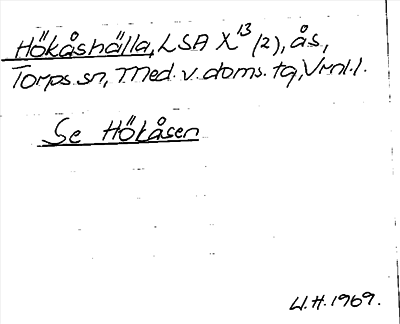 Hökåshälla, LSA X¹³ (2), ås,
Torps sn, Med. v. doms. tg, Vrnl. l.
Se Hökåsen
W.H. 1969.